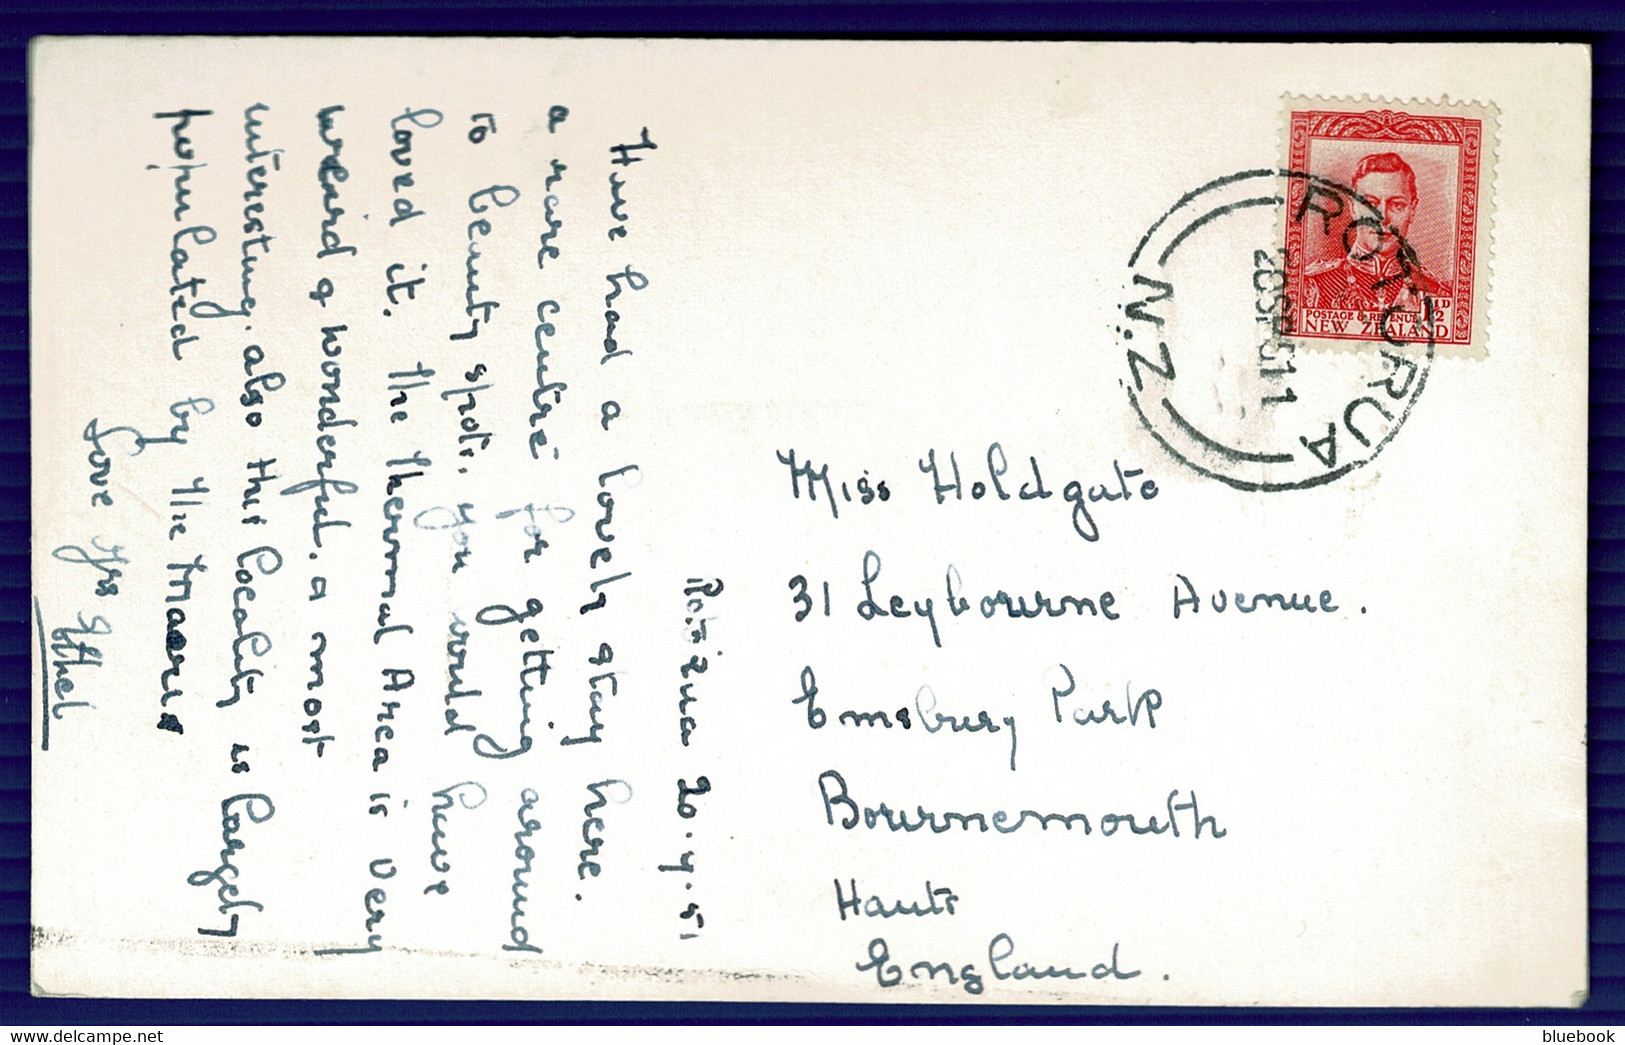 Rotorua 20.9.51
Have had a lovely stay here.
a rare centre for getting around
to beauty spots, you would have
loved it. The Thermal Area is very
weird & wonderful. a most
interesting. also this locality is largely
populated by the Maoris
Love Yrs
Ethel
Miss Holdgate
31 Leybourne Avenue.
Emsbury Park
Bournemouth
Hants
England.
ROTORUA
N.Z.
POSTAGE & REVENUE 1½D
NEW ZEALAND
bluebook